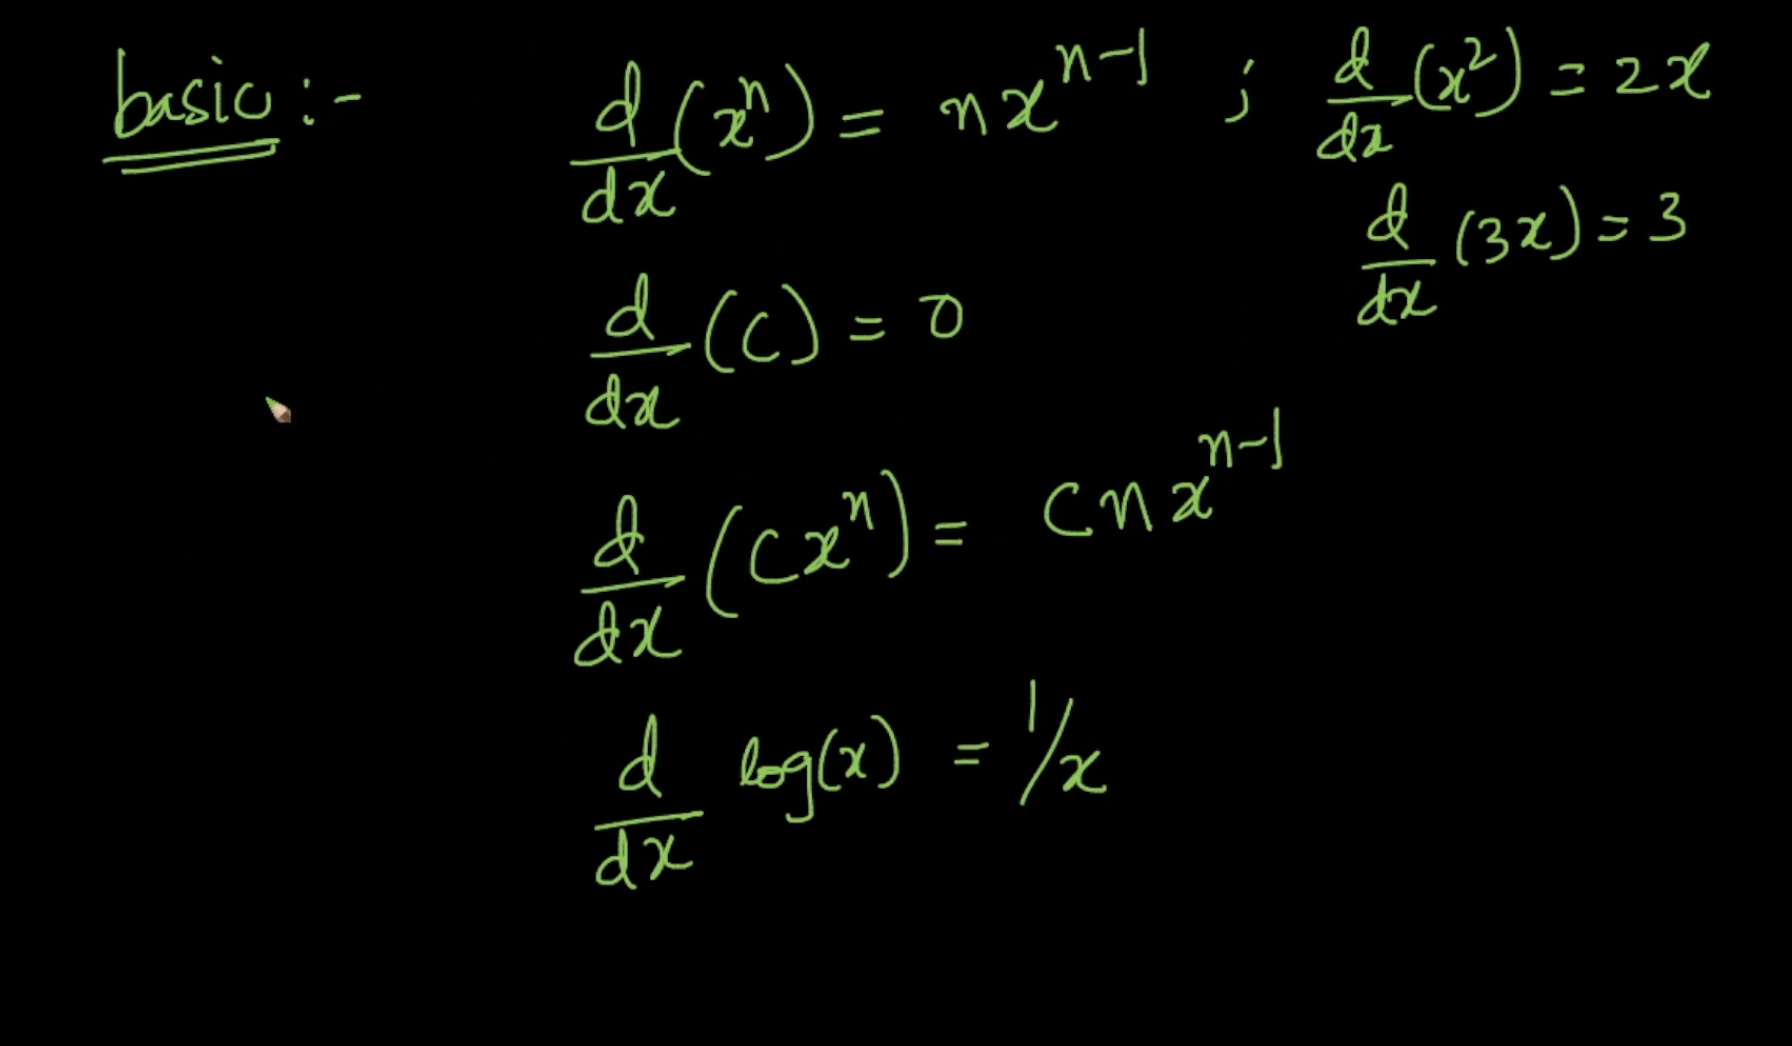 basic :-
d/dx (xⁿ) = nxⁿ⁻¹ ; d/dx (x²) = 2x
d/dx (3x) = 3
d/dx (c) = 0
d/dx (cxⁿ) = cnxⁿ⁻¹
d/dx log(x) = 1/x